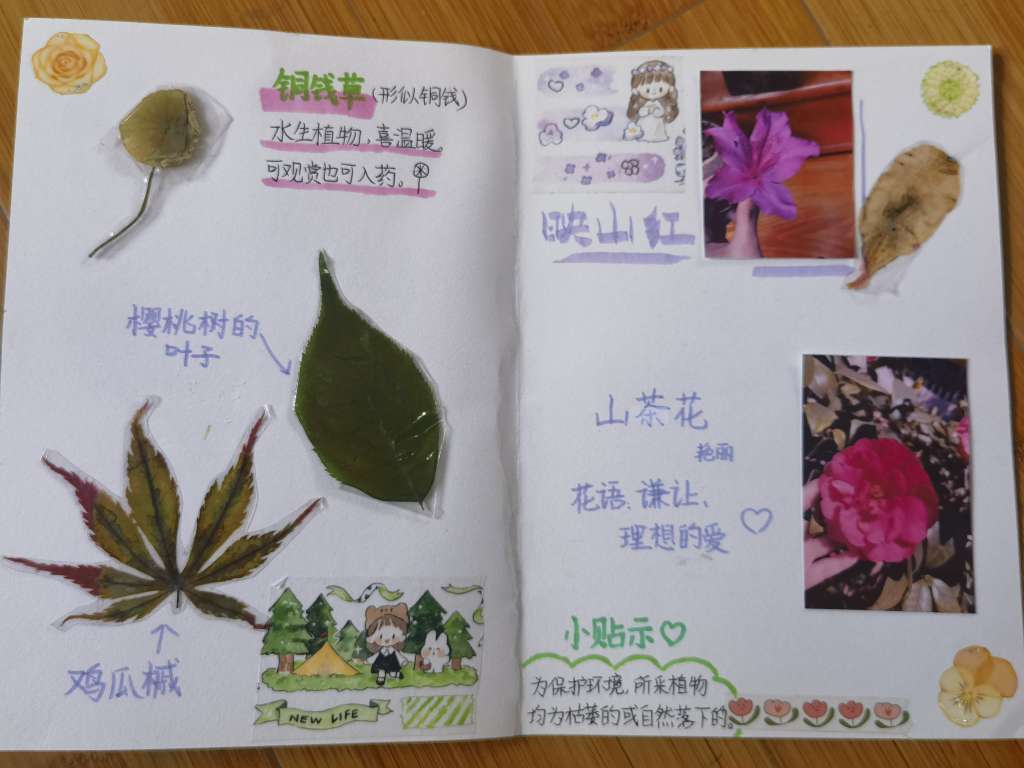 铜钱草(形似铜钱)
水生植物,喜温暖,
可观赏也可入药。
樱桃树的
叶子
鸡瓜槭
NEW LIFE
映山红
山茶花
艳丽
花语:谦让、
理想的爱
小贴示
为保护环境,所采植物
均为枯萎的或自然落下的。